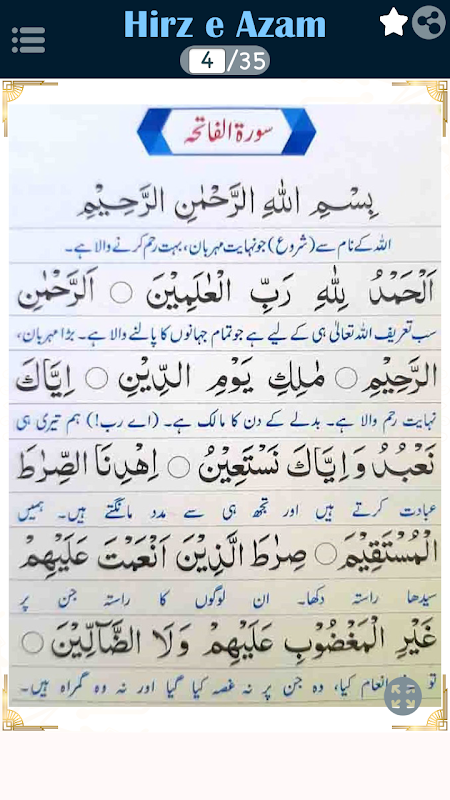 Hirz e Azam
4/35
سورۃ الفاتحہ
بِسْمِ اللهِ الرَّحْمٰنِ الرَّحِيْمِ
اللہ کے نام سے (شروع) جو نہایت مہربان، بہت رحم کرنے والا ہے۔
اَلْحَمْدُ لِلّٰهِ رَبِّ الْعٰلَمِيْنَ ○ اَلرَّحْمٰنِ
سب تعریف اللہ تعالیٰ ہی کے لیے ہے جو تمام جہانوں کا پالنے والا ہے۔ بڑا مہربان،
الرَّحِيْمِ ○ مٰلِكِ يَوْمِ الدِّيْنِ ○ اِيَّاكَ
نہایت رحم والا ہے۔ بدلے کے دن کا مالک ہے۔ (اے رب!) ہم تیری ہی
نَعْبُدُ وَاِيَّاكَ نَسْتَعِيْنُ ○ اِهْدِنَا الصِّرَاطَ
عبادت کرتے ہیں اور تجھ ہی سے مدد مانگتے ہیں۔ ہمیں
الْمُسْتَقِيْمَ ○ صِرَاطَ الَّذِيْنَ اَنْعَمْتَ عَلَيْهِمْ
سیدھا راستہ دکھا۔ ان لوگوں کا راستہ جن پر
غَيْرِ الْمَغْضُوْبِ عَلَيْهِمْ وَلَا الضَّآلِّيْنَ ○
تو انعام کیا، وہ جن پر نہ غصہ کیا گیا اور نہ وہ گمراہ ہیں۔